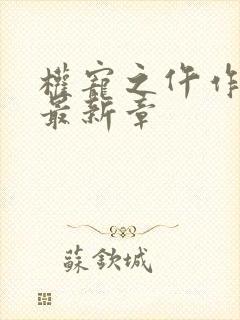 權寵之仵作
最新章
蘇欽城